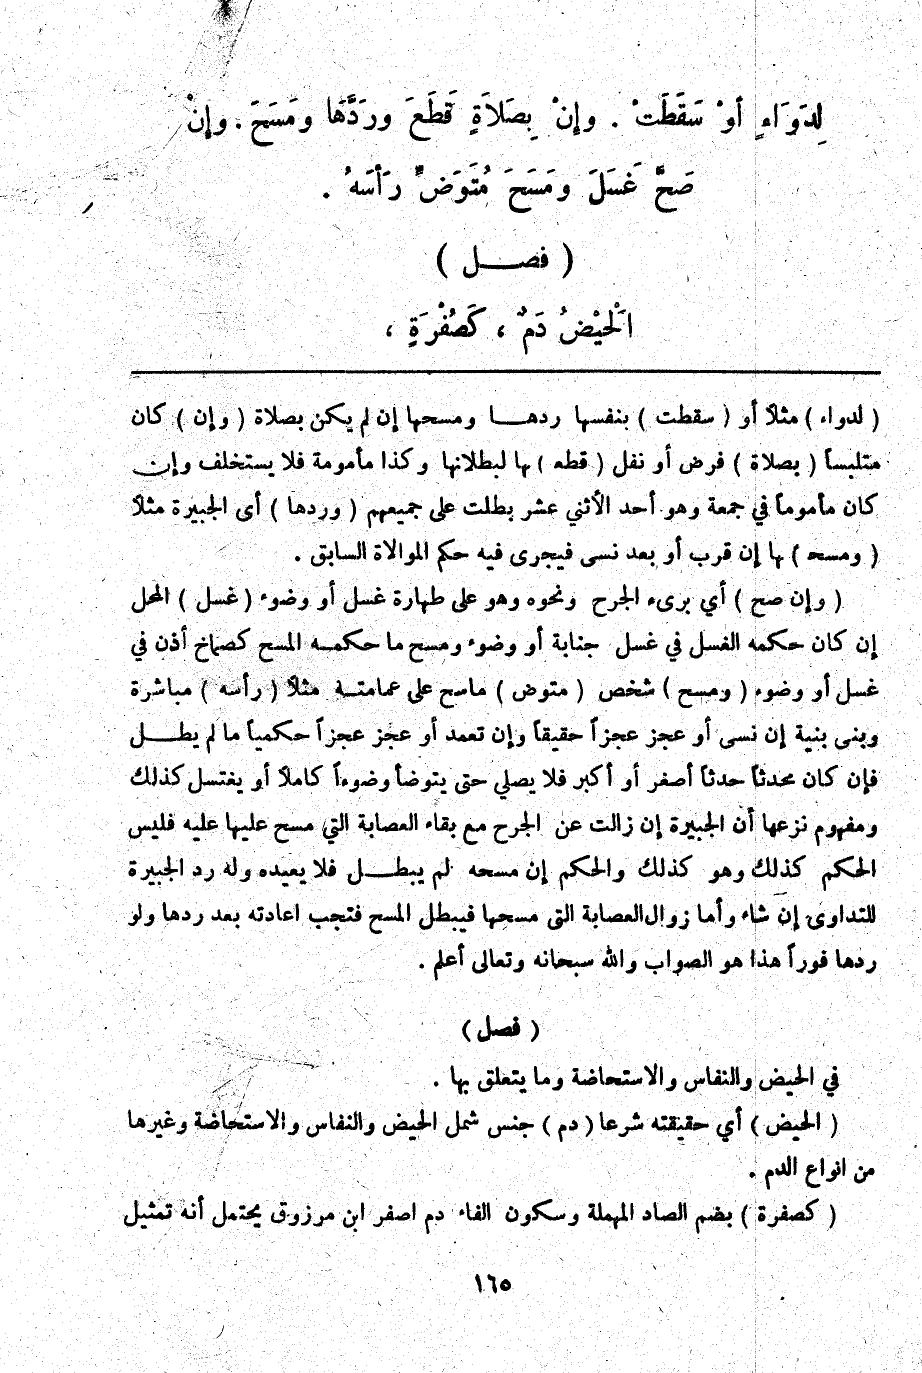 لِدَوَاءٍ أَوْ سَقَطَتْ . وإِنْ بِصَلاَةٍ قَطَعَ ورَدَّهَا ومَسَحَ . وإِنْ
صَحَّ غَسَلَ ومَسَحَ مُتَوَضٍّ رَأْسَهُ .
( فصــل )
الْحَيْضُ دَمٌ ، كَصُفْرَةٍ ،
( لدواء ) مثلاً أو ( سقطت ) بنفسها ردهــا ومسحها إن لم يكن بصلاة ( وإن ) كان
متلبساً ( بصلاة ) فرض أو نفل ( قطع ) ها لبطلانها وكذا مأمومة فلا يستخلف وإن
كان مأموماً في جمعة وهو أحد الأثني عشر بطلت على جميعهم ( وردها ) أى الجبيرة مثلاً
( ومسح ) ها إن قرب أو بعد نسى فيجرى فيه حكم الموالاة السابق .
( وإن صح ) أي برىء الجرح ونحوه وهو على طهارة غسل أو وضوء ( غسل ) المحل
إن كان حكمه الغسل في غسل جنابة أو وضوء ومسح ما حكمــه المسح كصماخ أذن في
غسل أو وضوء ( ومسح ) شخص ( متوض ) ماسح على عمامتــه مثلاً ( رأسه ) مباشرة
وبنى بنية إن نسى أو عجز عجزاً حقيقاً وإن تعمد أو عجز عجزاً حكمياً ما لم يطــل
فإن كان محدثاً حدثاً أصغر أو أكبر فلا يصلي حتى يتوضأ وضوءاً كاملاً أو يغتسل كذلك
ومفهوم نزعها أن الجبيرة إن زالت عن الجرح مع بقاء العصابة التي مسح عليها عليه فليس
الحكم كذلك وهو كذلك والحكم إن مسحه لم يبطــل فلا يعيده وله رد الجبيرة
للتداوى إن شاء وأما زوال العصابة التى مسحها فيبطل المسح فتجب اعادته بعد ردها ولو
ردها فوراً هذا هو الصواب والله سبحانه وتعالى أعلم .
( فصل )
في الحيض والنفاس والاستحاضة وما يتعلق بها .
( الحيض ) أي حقيقته شرعا ( دم ) جنس شمل الحيض والنفاس والاستحاضة وغيرها
من انواع الدم .
( كصفرة ) بضم الصاد المهملة وسكون الفاء دم اصفر ابن مرزوق يحتمل أنه تمثيل
١٦٥